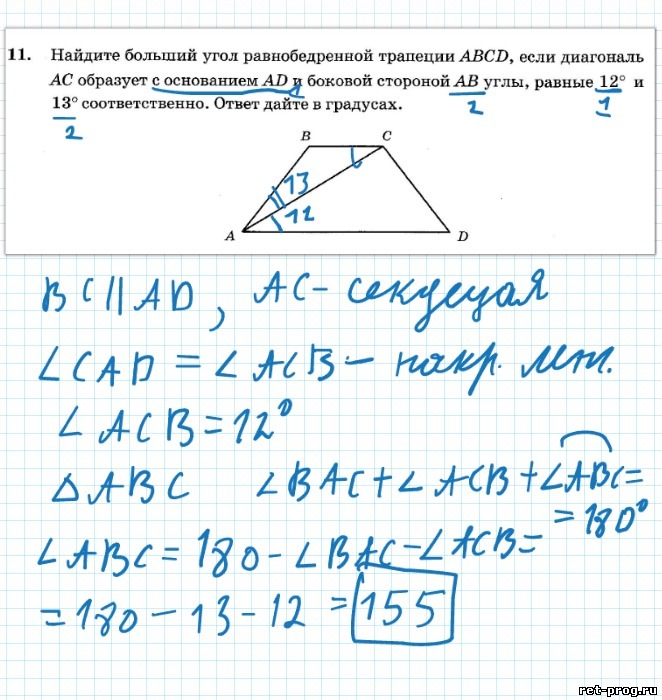 11. Найдите больший угол равнобедренной трапеции ABCD, если диагональ
AC образует с основанием AD и боковой стороной AB углы, равные 12° и
13° соответственно. Ответ дайте в градусах.
1
2
1
2
B C
13
12
A D
BC || AD, AC - секущая
∠CAD = ∠ACB - накр. леж.
∠ACB = 12°
△ABC ∠BAC + ∠ACB + ∠ABC =
= 180°
∠ABC = 180 - ∠BAC - ∠ACB =
= 180 - 13 - 12 = 155
ret-prog.ru